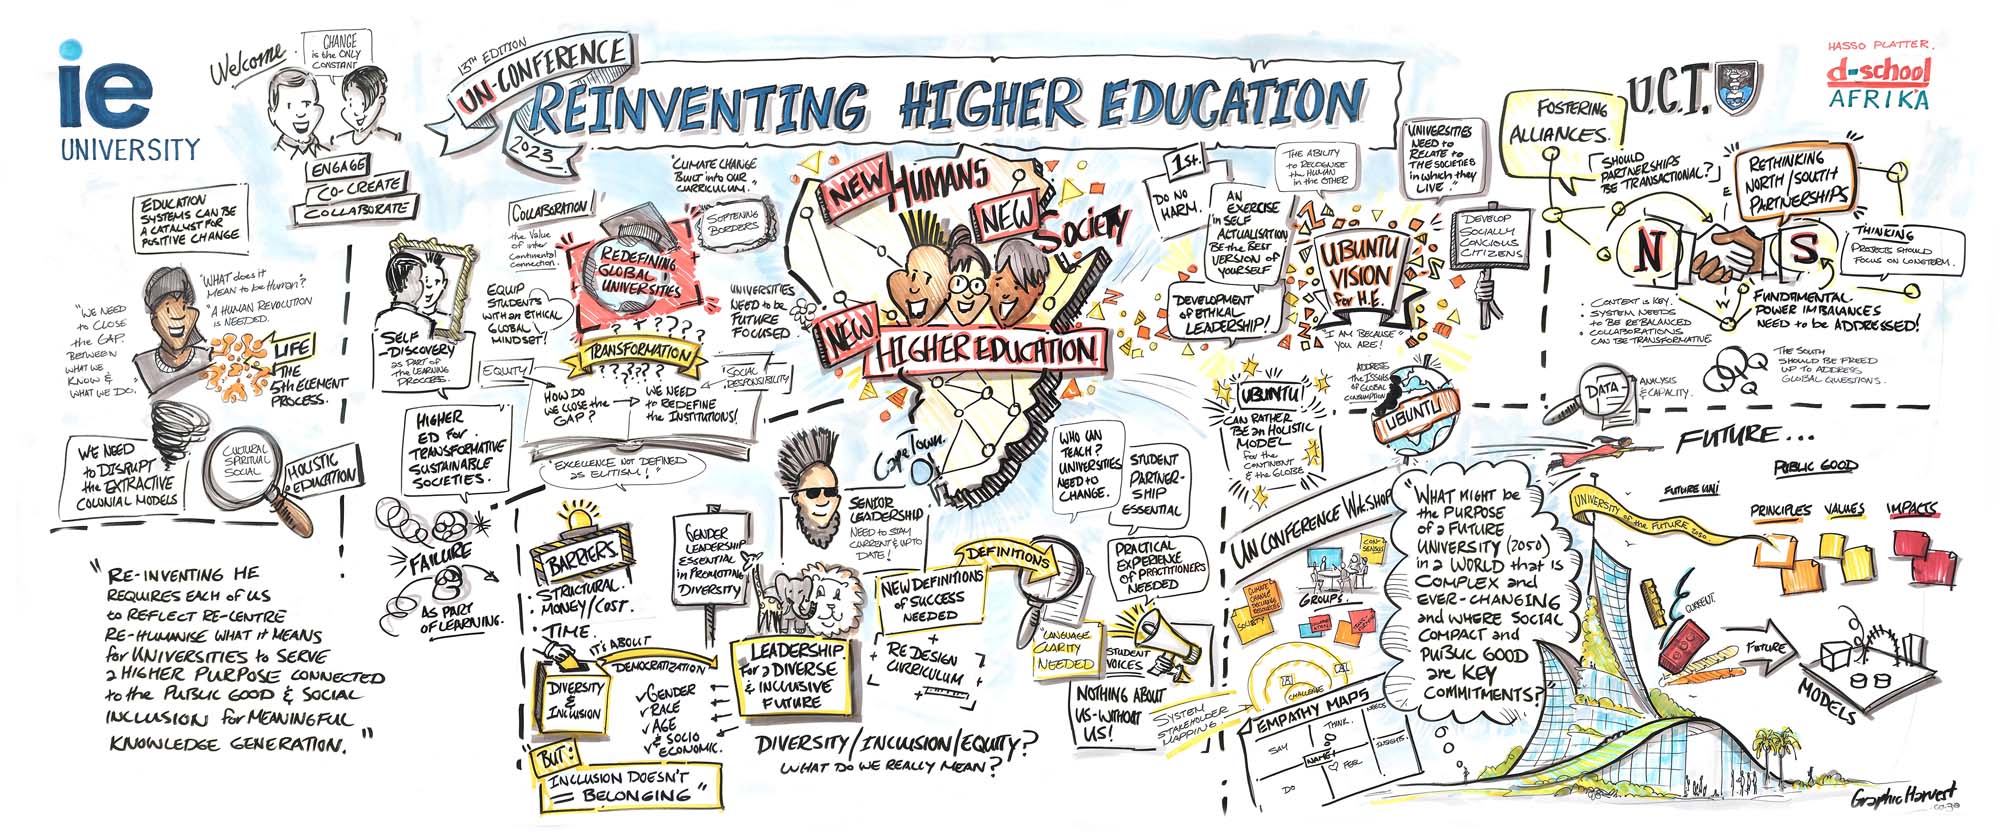 ie
UNIVERSITY
Welcome.
CHANGE
is the ONLY
CONSTANT
ENGAGE
CO-CREATE
COLLABORATE
13TH EDITION
UN-CONFERENCE
2023
REINVENTING HIGHER EDUCATION
U.C.T.
HASSO PLATTER.
d-school
AFRIKA
EDUCATION
SYSTEMS CAN BE
A CATALYST FOR
POSITIVE CHANGE
"WE NEED
to CLOSE
the GAP.
BETWEEN
WHAT WE
KNOW &
WHAT WE DO.
"WHAT does it
MEAN to be HUMAN?"
"A HUMAN REVOLUTION
is NEEDED.
LIFE!
THE
5th ELEMENT
PROCESS.
WE NEED
to DISRUPT
the EXTRACTIVE
COLONIAL MODELS
CULTURAL
SPIRITUAL
SOCIAL
HOLISTIC
EDUCATION
"RE-INVENTING HE
REQUIRES EACH of US
to REFLECT RE-CENTRE
RE-HUMANISE WHAT it MEANS
for UNIVERSITIES to SERVE
a HIGHER PURPOSE CONNECTED
to the PUBLIC GOOD & SOCIAL
INCLUSION for MEANINGFUL
KNOWLEDGE GENERATION."
SELF
-DISCOVERY
as PART of
the LEARNING
PROCESS.
HIGHER
ED FOR
TRANSFORMATIVE
SUSTAINABLE
SOCIETIES.
FAILURE
AS PART
OF LEARNING.
COLLABORATION
the VALUE
of inter
Continental
Connection.
"CLIMATE CHANGE
BUILT into OUR
CURRICULUM."
SOFTENING
BORDERS
REDEFINING
GLOBAL
UNIVERSITIES
EQUIP
STUDENTS
WITH an ETHICAL
GLOBAL
MINDSET!
UNIVERSITIES
NEED to be
FUTURE
FOCUSED
? ? ? ? ? ? ?
TRANSFORMATION
? ? ? ? ?
EQUITY
"SOCIAL
RESPONSIBILITY
HOW DO
WE CLOSE the
GAP?
WE NEED
to REDEFINE
the INSTITUTIONS!
EXCELLENCE NOT DEFINED
as ELITISM!"
NEW HUMANS
NEW
SOCIETY
NEW
HIGHER EDUCATION!
Cape Town.
1st.
DO NO
HARM.
AN
EXERCISE
in SELF
ACTUALISATION
BE the BEST
VERSION of
YOURSELF
DEVELOPMENT
of ETHICAL
LEADERSHIP!
THE ABILITY
to RECOGNISE
the HUMAN
in the OTHER
"UNIVERSITIES
NEED to
RELATE to
THE SOCIETIES
in which they
LIVE."
UBUNTU
VISION
for H.E.
"I AM BECAUSE
YOU ARE!
DEVELOP
SOCIALLY
CONCIOUS
CITIZENS
UBUNTU
CAN RATHER
BE an HOLISTIC
MODEL
for the
CONTINENT
& the GLOBE
ADDRESS
the ISSUES
of GLOBAL
CONSUMPTION
UBUNTU
FOSTERING
ALLIANCES.
"SHOULD
PARTNERSHIPS
BE TRANSACTIONAL?
RETHINKING
NORTH/SOUTH
PARTNERSHIPS
E
N
S
W
THINKING
PROJECTS SHOULD
FOCUS ON LONGTERM.
• CONTEXT is KEY.
• SYSTEM NEEDS
to BE REBALANCED
• COLLABORATIONS
CAN be TRANSFORMATIVE
FUNDAMENTAL
POWER IMBALANCES
NEED to be ADDRESSED!
THE SOUTH
SHOULD BE FREED
UP to ADDRESS
GLOBAL QUESTIONS.
DATA
ANALYSIS
& CAPACITY.
BARRIERS
STRUCTURAL.
MONEY/COST.
TIME
DIVERSITY
&
INCLUSION
IT'S ABOUT
DEMOCRATIZATION
GENDER
RACE
AGE
& SOCIO
ECONOMIC.
BUT:
INCLUSION DOESN'T
= BELONGING"
GENDER
LEADERSHIP
ESSENTIAL
in PROMOTING
DIVERSITY
SENIOR
LEADERSHIP
NEED to STAY
CURRENT & UP TO
DATE!
LEADERSHIP
For a DIVERSE
& INCLUSIVE
FUTURE
DIVERSITY/INCLUSION/EQUITY?
WHAT DO WE REALLY MEAN?
NEW DEFINITIONS
of SUCCESS
NEEDED
+
RE DESIGN
CURRICULUM
+
DEFINITIONS
"LANGUAGE
CLARITY
NEEDED
WHO CAN
TEACH?
UNIVERSITIES
NEED to
CHANGE.
STUDENT
PARTNER-
SHIP
ESSENTIAL
PRACTICAL
EXPERIENCE
of PRACTITIONERS
NEEDED
STUDENT
VOICES
NOTHING ABOUT
US-WITHOUT
US!
UN CONFERENCE WKSHOP
CON-
SENSUS
CLIMATE
CHANGE
RESOURCES
SOCIETY
GROUPS.
CHALLENGE
SYSTEM
STAKEHOLDER
MAPPING.
EMPATHY MAPS
SAY
THINK.
NEEDS
NAME
INSIGHTS.
DO
FEEL
"WHAT MIGHT be
the PURPOSE
of a FUTURE
UNIVERSITY (2050)
in a WORLD that is
COMPLEX and
EVER-CHANGING
and WHERE SOCIAL
COMPACT and
PUBLIC GOOD
are KEY
COMMITMENTS?"
FUTURE...
PUBLIC GOOD
FUTURE UNI
UNIVERSITY of the FUTURE 2050.
PRINCIPLES
VALUES
IMPACTS
CURRENT.
FUTURE
MODELS
Graphic Harvest
.co.za